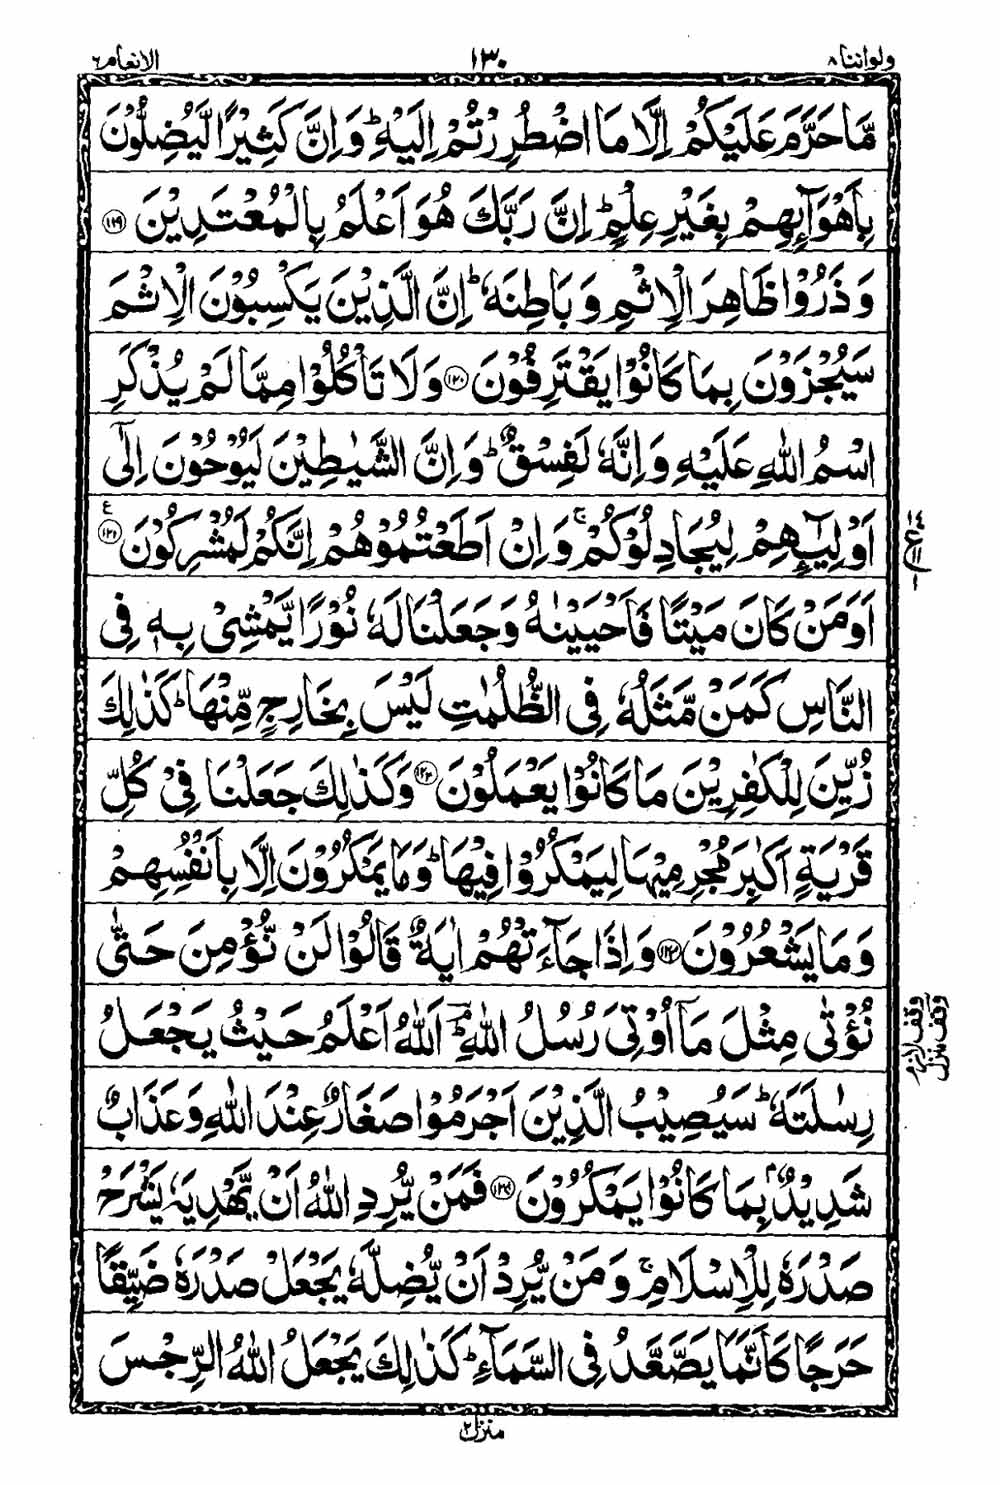 ولواننا ۸ ۱۳۰ الانعام ۶
مَّا حَرَّمَ عَلَيْكُمْ اِلَّا مَا اضْطُرِرْتُمْ اِلَيْهِ ؕ وَاِنَّ كَثِيْرًا لَّيُضِلُّوْنَ
بِاَهْوَآئِهِمْ بِغَيْرِ عِلْمٍ ؕ اِنَّ رَبَّكَ هُوَ اَعْلَمُ بِالْمُعْتَدِيْنَ ﴿۱۱۹﴾
وَذَرُوْا ظَاهِرَ الْاِثْمِ وَبَاطِنَهٗ ؕ اِنَّ الَّذِيْنَ يَكْسِبُوْنَ الْاِثْمَ
سَيُجْزَوْنَ بِمَا كَانُوْا يَقْتَرِفُوْنَ ﴿۱۲۰﴾ وَلَا تَاْكُلُوْا مِمَّا لَمْ يُذْكَرِ
اسْمُ اللّٰهِ عَلَيْهِ وَاِنَّهٗ لَفِسْقٌ ؕ وَاِنَّ الشَّيٰطِيْنَ لَيُوْحُوْنَ اِلٰٓى
اَوْلِيٰٓـِٕهِمْ لِيُجَادِلُوْكُمْ ۚ وَاِنْ اَطَعْتُمُوْهُمْ اِنَّكُمْ لَمُشْرِكُوْنَ ﴿۱۲۱﴾ ع
اَوَمَنْ كَانَ مَيْتًا فَاَحْيَيْنٰهُ وَجَعَلْنَا لَهٗ نُوْرًا يَّمْشِىْ بِهٖ فِى
النَّاسِ كَمَنْ مَّثَلُهٗ فِى الظُّلُمٰتِ لَيْسَ بِخَارِجٍ مِّنْهَا ؕ كَذٰلِكَ
زُيِّنَ لِلْكٰفِرِيْنَ مَا كَانُوْا يَعْمَلُوْنَ ﴿۱۲۲﴾ وَكَذٰلِكَ جَعَلْنَا فِىْ كُلِّ
قَرْيَةٍ اَكٰبِرَ مُجْرِمِيْهَا لِيَمْكُرُوْا فِيْهَا ؕ وَمَا يَمْكُرُوْنَ اِلَّا بِاَنْفُسِهِمْ
وَمَا يَشْعُرُوْنَ ﴿۱۲۳﴾ وَاِذَا جَآءَتْهُمْ اٰيَةٌ قَالُوْا لَنْ نُّؤْمِنَ حَتّٰى
نُؤْتٰى مِثْلَ مَاۤ اُوْتِىَ رُسُلُ اللّٰهِ ؔۘ اَللّٰهُ اَعْلَمُ حَيْثُ يَجْعَلُ
رِسٰلَتَهٗ ؕ سَيُصِيْبُ الَّذِيْنَ اَجْرَمُوْا صَغَارٌ عِنْدَ اللّٰهِ وَعَذَابٌ
شَدِيْدٌۢ بِمَا كَانُوْا يَمْكُرُوْنَ ﴿۱۲۴﴾ فَمَنْ يُّرِدِ اللّٰهُ اَنْ يَّهْدِيَهٗ يَشْرَحْ
صَدْرَهٗ لِلْاِسْلَامِ ۚ وَمَنْ يُّرِدْ اَنْ يُّضِلَّهٗ يَجْعَلْ صَدْرَهٗ ضَيِّقًا
حَرَجًا كَاَنَّمَا يَصَّعَّدُ فِى السَّمَآءِ ؕ كَذٰلِكَ يَجْعَلُ اللّٰهُ الرِّجْسَ
وقف لازم
وقف منزل
منزل ۲